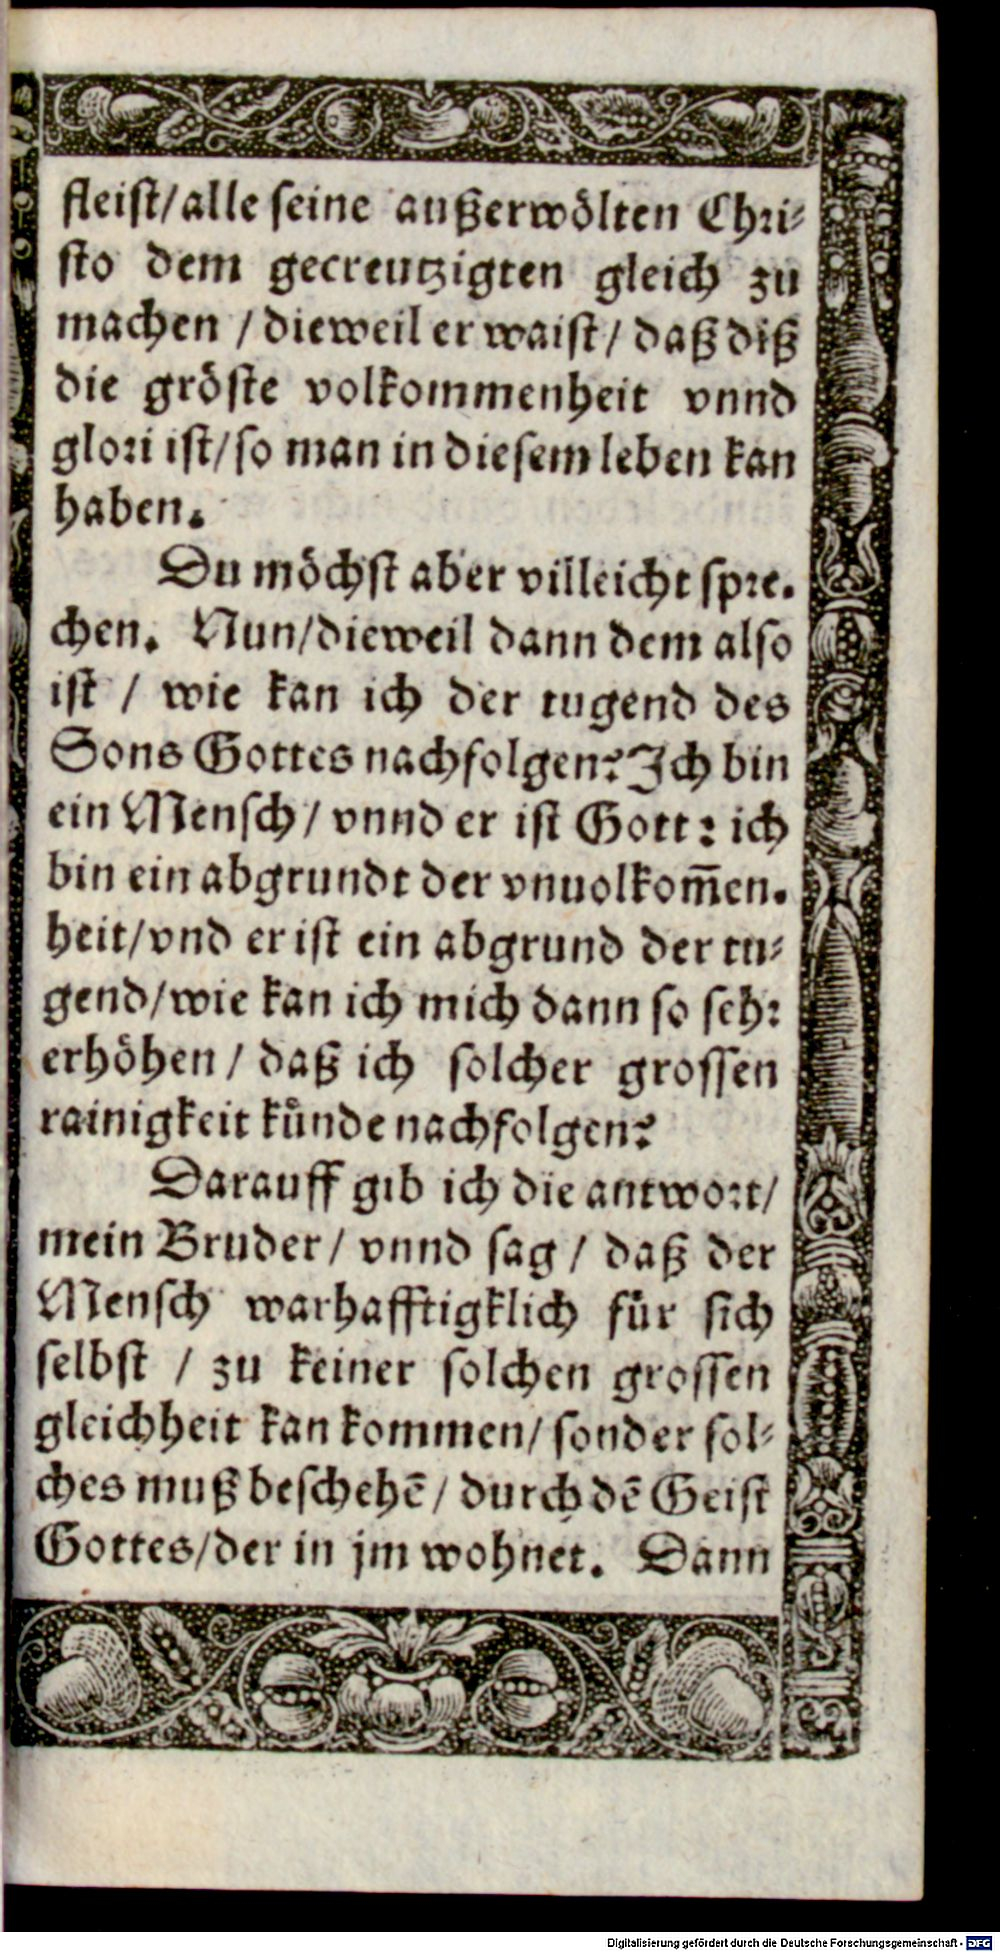 fleist/alle seine außerwölten Chri-
sto dem gecreutzigten gleich zu
machen / dieweil er waist/ daß diß
die gröste volkommenheit vnnd
glori ist/so man in diesem leben kan
haben.
Du möchst aber villeicht spre.
chen. Nun/dieweil dann dem also
ist / wie kan ich der tugend des
Sons Gottes nachfolgen? Ich bin
ein Mensch/ vnnd er ist Gott: ich
bin ein abgrundt der vnuolkom̄en.
heit/vnd er ist ein abgrund der tu-
gend/wie kan ich mich dann so sehr
erhöhen / daß ich solcher grossen
rainigkeit kuͤnde nachfolgen?
Darauff gib ich die antwort/
mein Bruder/ vnnd sag / daß der
Mensch warhafftigklich für sich
selbst / zu keiner solchen grossen
gleichheit kan kommen/ sonder sol-
ches muß beschehē/ durch dē Geist
Gottes/der in jm wohnet. Dann
Digitalisierung gefördert durch die Deutsche Forschungsgemeinschaft - DFG